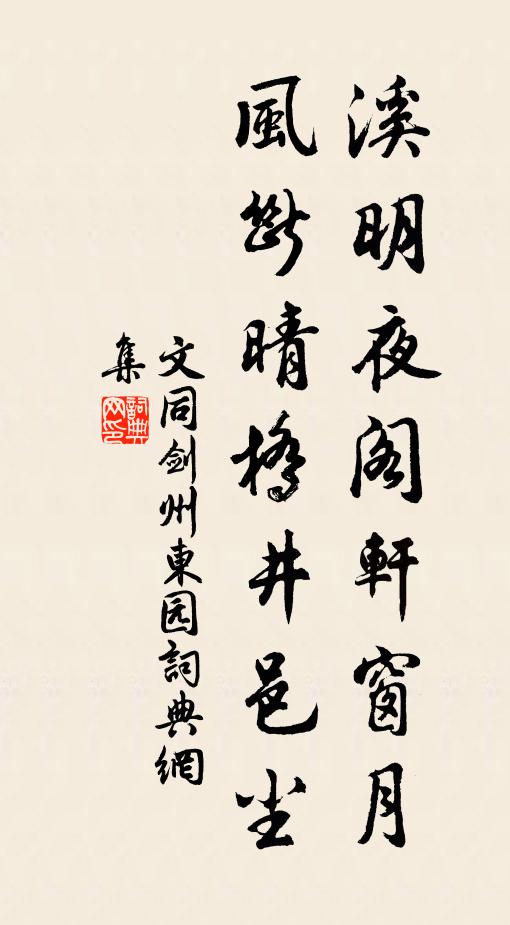 溪明夜阁軒窗月
風斷晴橋井邑尘
文同剑州東园詞典網
集
詞典
网印